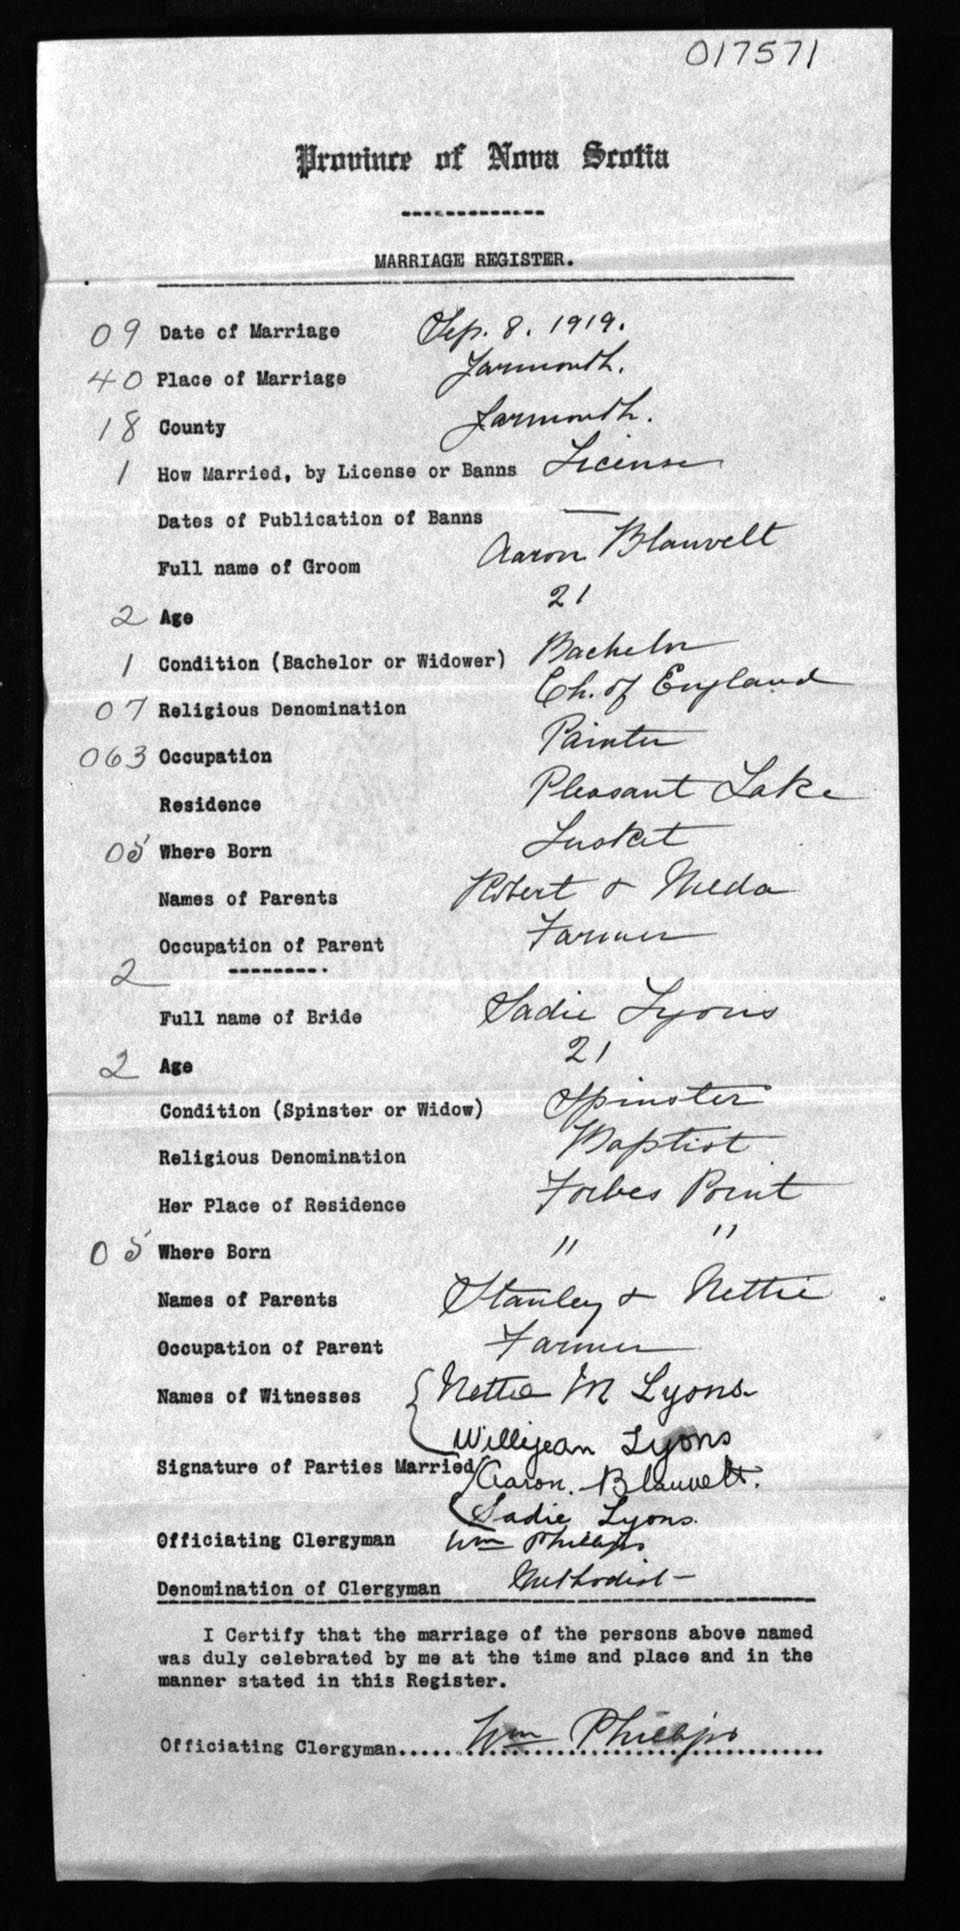 017571
Province of Nova Scotia
MARRIAGE REGISTER.
09 Date of Marriage Sep. 8. 1919.
40 Place of Marriage Yarmouth.
18 County Yarmouth.
1 How Married, by License or Banns License
Dates of Publication of Banns —
Full name of Groom Aaron Blauvelt
2 Age 21
1 Condition (Bachelor or Widower) Bachelor
07 Religious Denomination Ch. of England
063 Occupation Painter
Residence Pleasant Lake
05 Where Born Tusket
Names of Parents Robert &
Occupation of Parent Farmer
2
Full name of Bride Sadie Lyons
2 Age 21
Condition (Spinster or Widow) Spinster
Religious Denomination Baptist
Her Place of Residence Forbes Point
05 Where Born " "
Names of Parents Stanley & Nettie
Occupation of Parent Farmer
Names of Witnesses Nettie M Lyons
Willijean Lyons
Signature of Parties Married Aaron. Blauvelt.
Sadie Lyons.
Officiating Clergyman Wm Phillips
Denomination of Clergyman Methodist
I Certify that the marriage of the persons above named
was duly celebrated by me at the time and place and in the
manner stated in this Register.
Officiating Clergyman..... Wm Phillips